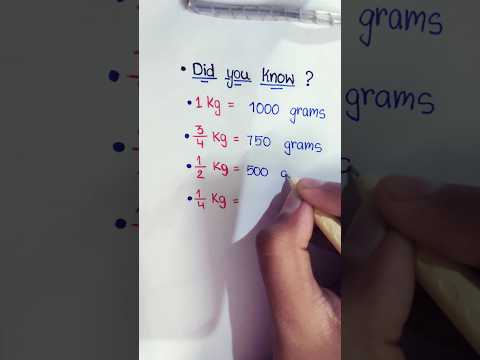 • Did you know ?
• 1 Kg = 1000 grams
• 3/4 Kg = 750 grams
• 1/2 Kg = 500 g
• 1/4 Kg =